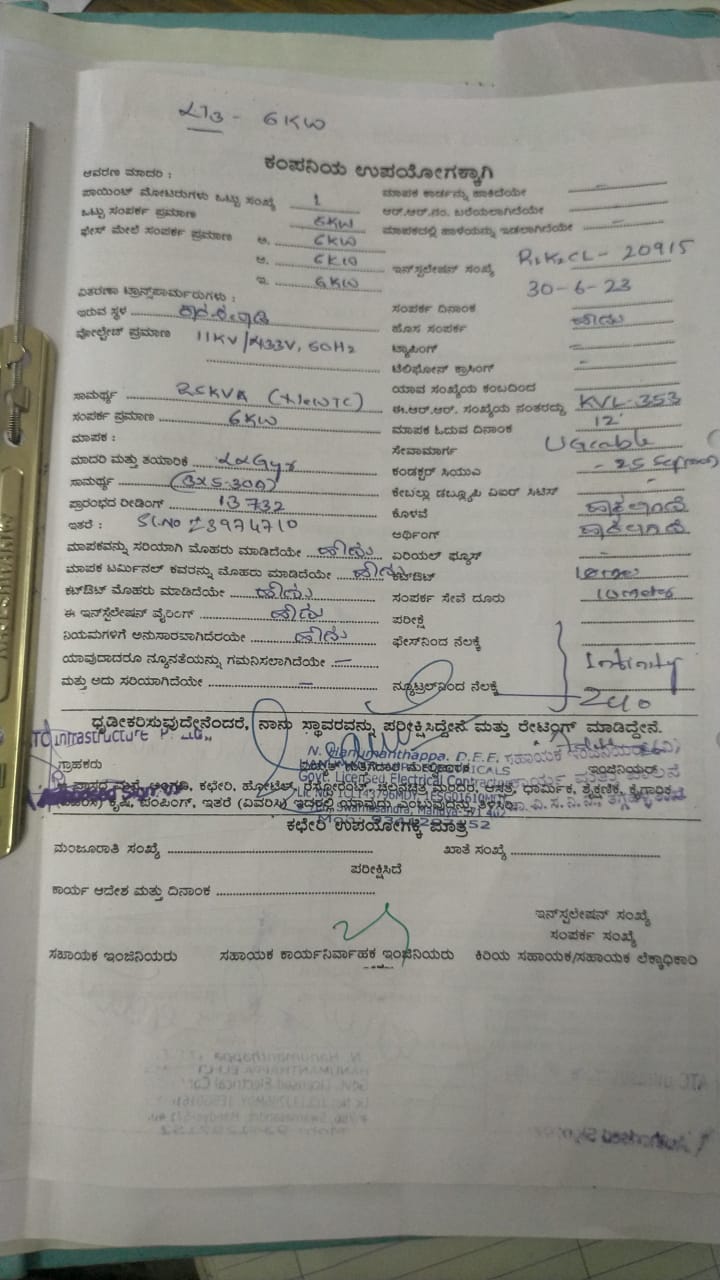 LT3 - 6KW
ಕಂಪನಿಯ ಉಪಯೋಗಕ್ಕಾಗಿ
ಆವರಣ ಮಾದರಿ :
ಪಾಯಿಂಟ್ ಮೋಟರುಗಳು ಒಟ್ಟು ಸಂಖ್ಯೆ 1 ಮಾಪಕ ಕಾರ್ಡನ್ನು ಹಾಕಿದೆಯೇ
ಒಟ್ಟು ಸಂಪರ್ಕ ಪ್ರಮಾಣ 6KW ಆರ್.ಆರ್.ನಂ. ಬರೆಯಲಾಗಿದೆಯೇ
ಫೇಸ್ ಮೇಲೆ ಸಂಪರ್ಕ ಪ್ರಮಾಣ ಅ. 6KW ಮಾಪಕದಲ್ಲಿ ಹಾಳೆಯನ್ನು ಇಡಲಾಗಿದೆಯೇ
ಆ. 6KW ಇನ್‌ಸ್ಟಲೇಷನ್ ಸಂಖ್ಯೆ - 20915
ಇ. 6KW 30-6-23
ವಿತರಣಾ ಟ್ರಾನ್ಸ್‌ಫಾರ್ಮರುಗಳು :
ಇರುವ ಸ್ಥಳ ಸಂಪರ್ಕ ದಿನಾಂಕ
ವೋಲ್ಟೇಜ್ ಪ್ರಮಾಣ 11KV/433V, 50Hz ಹೊಸ ಸಂಪರ್ಕ ಹೌದು
ಟ್ಯಾಪಿಂಗ್
ಟೆಲಿಫೋನ್ ಕ್ರಾಸಿಂಗ್
ಸಾಮರ್ಥ್ಯ 25KVA (New TC) ಯಾವ ಸಂಖ್ಯೆಯ ಕಂಬದಿಂದ
ಸಂಪರ್ಕ ಪ್ರಮಾಣ 6KW ಈ.ಆರ್.ಆರ್. ಸಂಖ್ಯೆಯ ನಂತರದ್ದು KVL-353
ಮಾಪಕ : ಮಾಪಕ ಓದುವ ದಿನಾಂಕ 12
ಮಾದರಿ ಮತ್ತು ತಯಾರಿಕೆ ಸೇವಾಮಾರ್ಗ UG cable
ಸಾಮರ್ಥ್ಯ (3X5-30A) ಕಂಡಕ್ಟರ್ ಸಿಯುಎ - 25 Sq(mm)
ಪ್ರಾರಂಭದ ರೀಡಿಂಗ್ 13732 ಕೇಬಲ್ಲು ಡಬ್ಲ್ಯೂಪಿ ವಿಐಆರ್ ಸಿಟಿಸ್
ಇತರೆ : Sl.No 13974710 ಕೊಳವೆ
ಮಾಪಕವನ್ನು ಸರಿಯಾಗಿ ಮೊಹರು ಮಾಡಿದೆಯೇ ಹೌದು ಅರ್ಥಿಂಗ್
ಮಾಪಕ ಟರ್ಮಿನಲ್ ಕವರನ್ನು ಮೊಹರು ಮಾಡಿದೆಯೇ ಹೌದು ಏರಿಯಲ್ ಫ್ಯೂಸ್
ಕಟ್‌ಔಟ್ ಮೊಹರು ಮಾಡಿದೆಯೇ ಹೌದು ಕಟ್‌ಔಟ್
ಈ ಇನ್‌ಸ್ಟಲೇಷನ್ ವೈರಿಂಗ್ ಹೌದು ಸಂಪರ್ಕ ಸೇವೆ ದೂರು 10 meter
ನಿಯಮಗಳಿಗೆ ಅನುಸಾರವಾಗಿದೆಯೇ ಹೌದು ಪರೀಕ್ಷೆ
ಯಾವುದಾದರೂ ನ್ಯೂನತೆಯನ್ನು ಗಮನಿಸಲಾಗಿದೆಯೇ ಫೇಸ್‌ನಿಂದ ನೆಲಕ್ಕೆ Infinity
ಮತ್ತು ಅದು ಸರಿಯಾಗಿದೆಯೇ ನ್ಯೂಟ್ರಲ್‌ನಿಂದ ನೆಲಕ್ಕೆ Zero
ಧೃಡೀಕರಿಸುವುದೇನೆಂದರೆ, ನಾನು ಸ್ಥಾವರವನ್ನು ಪರೀಕ್ಷಿಸಿದ್ದೇನೆ ಮತ್ತು ರೇಟಿಂಗ್ ಮಾಡಿದ್ದೇನೆ.
Infrastructure
N. Hanumanthappa. D.E.E.
ಗ್ರಾಹಕರು ಇಂಜಿನಿಯರ್
Govt. Licensed Electrical Contractor
ಕಛೇರಿ, ಹೋಟೆಲ್, ರೆಸ್ಟೋರೆಂಟ್, ಚಲನಚಿತ್ರ ಮಂದಿರ, ಆಸ್ಪತ್ರೆ, ಧಾರ್ಮಿಕ, ಶೈಕ್ಷಣಿಕ, ಕೈಗಾರಿಕ
ಕೃಷಿ, ಪಂಪಿಂಗ್, ಇತರೆ (ವಿವರಿಸಿ) ಇದರಲ್ಲಿ ಯಾವುದು ಎಂಬುವುದನ್ನು ತಿಳಿಸಿರಿ.
ಕಛೇರಿ ಉಪಯೋಗಕ್ಕೆ ಮಾತ್ರ
ಮಂಜೂರಾತಿ ಸಂಖ್ಯೆ ಖಾತೆ ಸಂಖ್ಯೆ
ಪರೀಕ್ಷಿಸಿದೆ
ಕಾರ್ಯ ಆದೇಶ ಮತ್ತು ದಿನಾಂಕ
ಇನ್‌ಸ್ಟಲೇಷನ್ ಸಂಖ್ಯೆ
ಸಂಪರ್ಕ ಸಂಖ್ಯೆ
ಸಹಾಯಕ ಇಂಜಿನಿಯರು ಸಹಾಯಕ ಕಾರ್ಯನಿರ್ವಾಹಕ ಇಂಜಿನಿಯರು ಕಿರಿಯ ಸಹಾಯಕ/ಸಹಾಯಕ ಲೆಕ್ಕಾಧಿಕಾರಿ